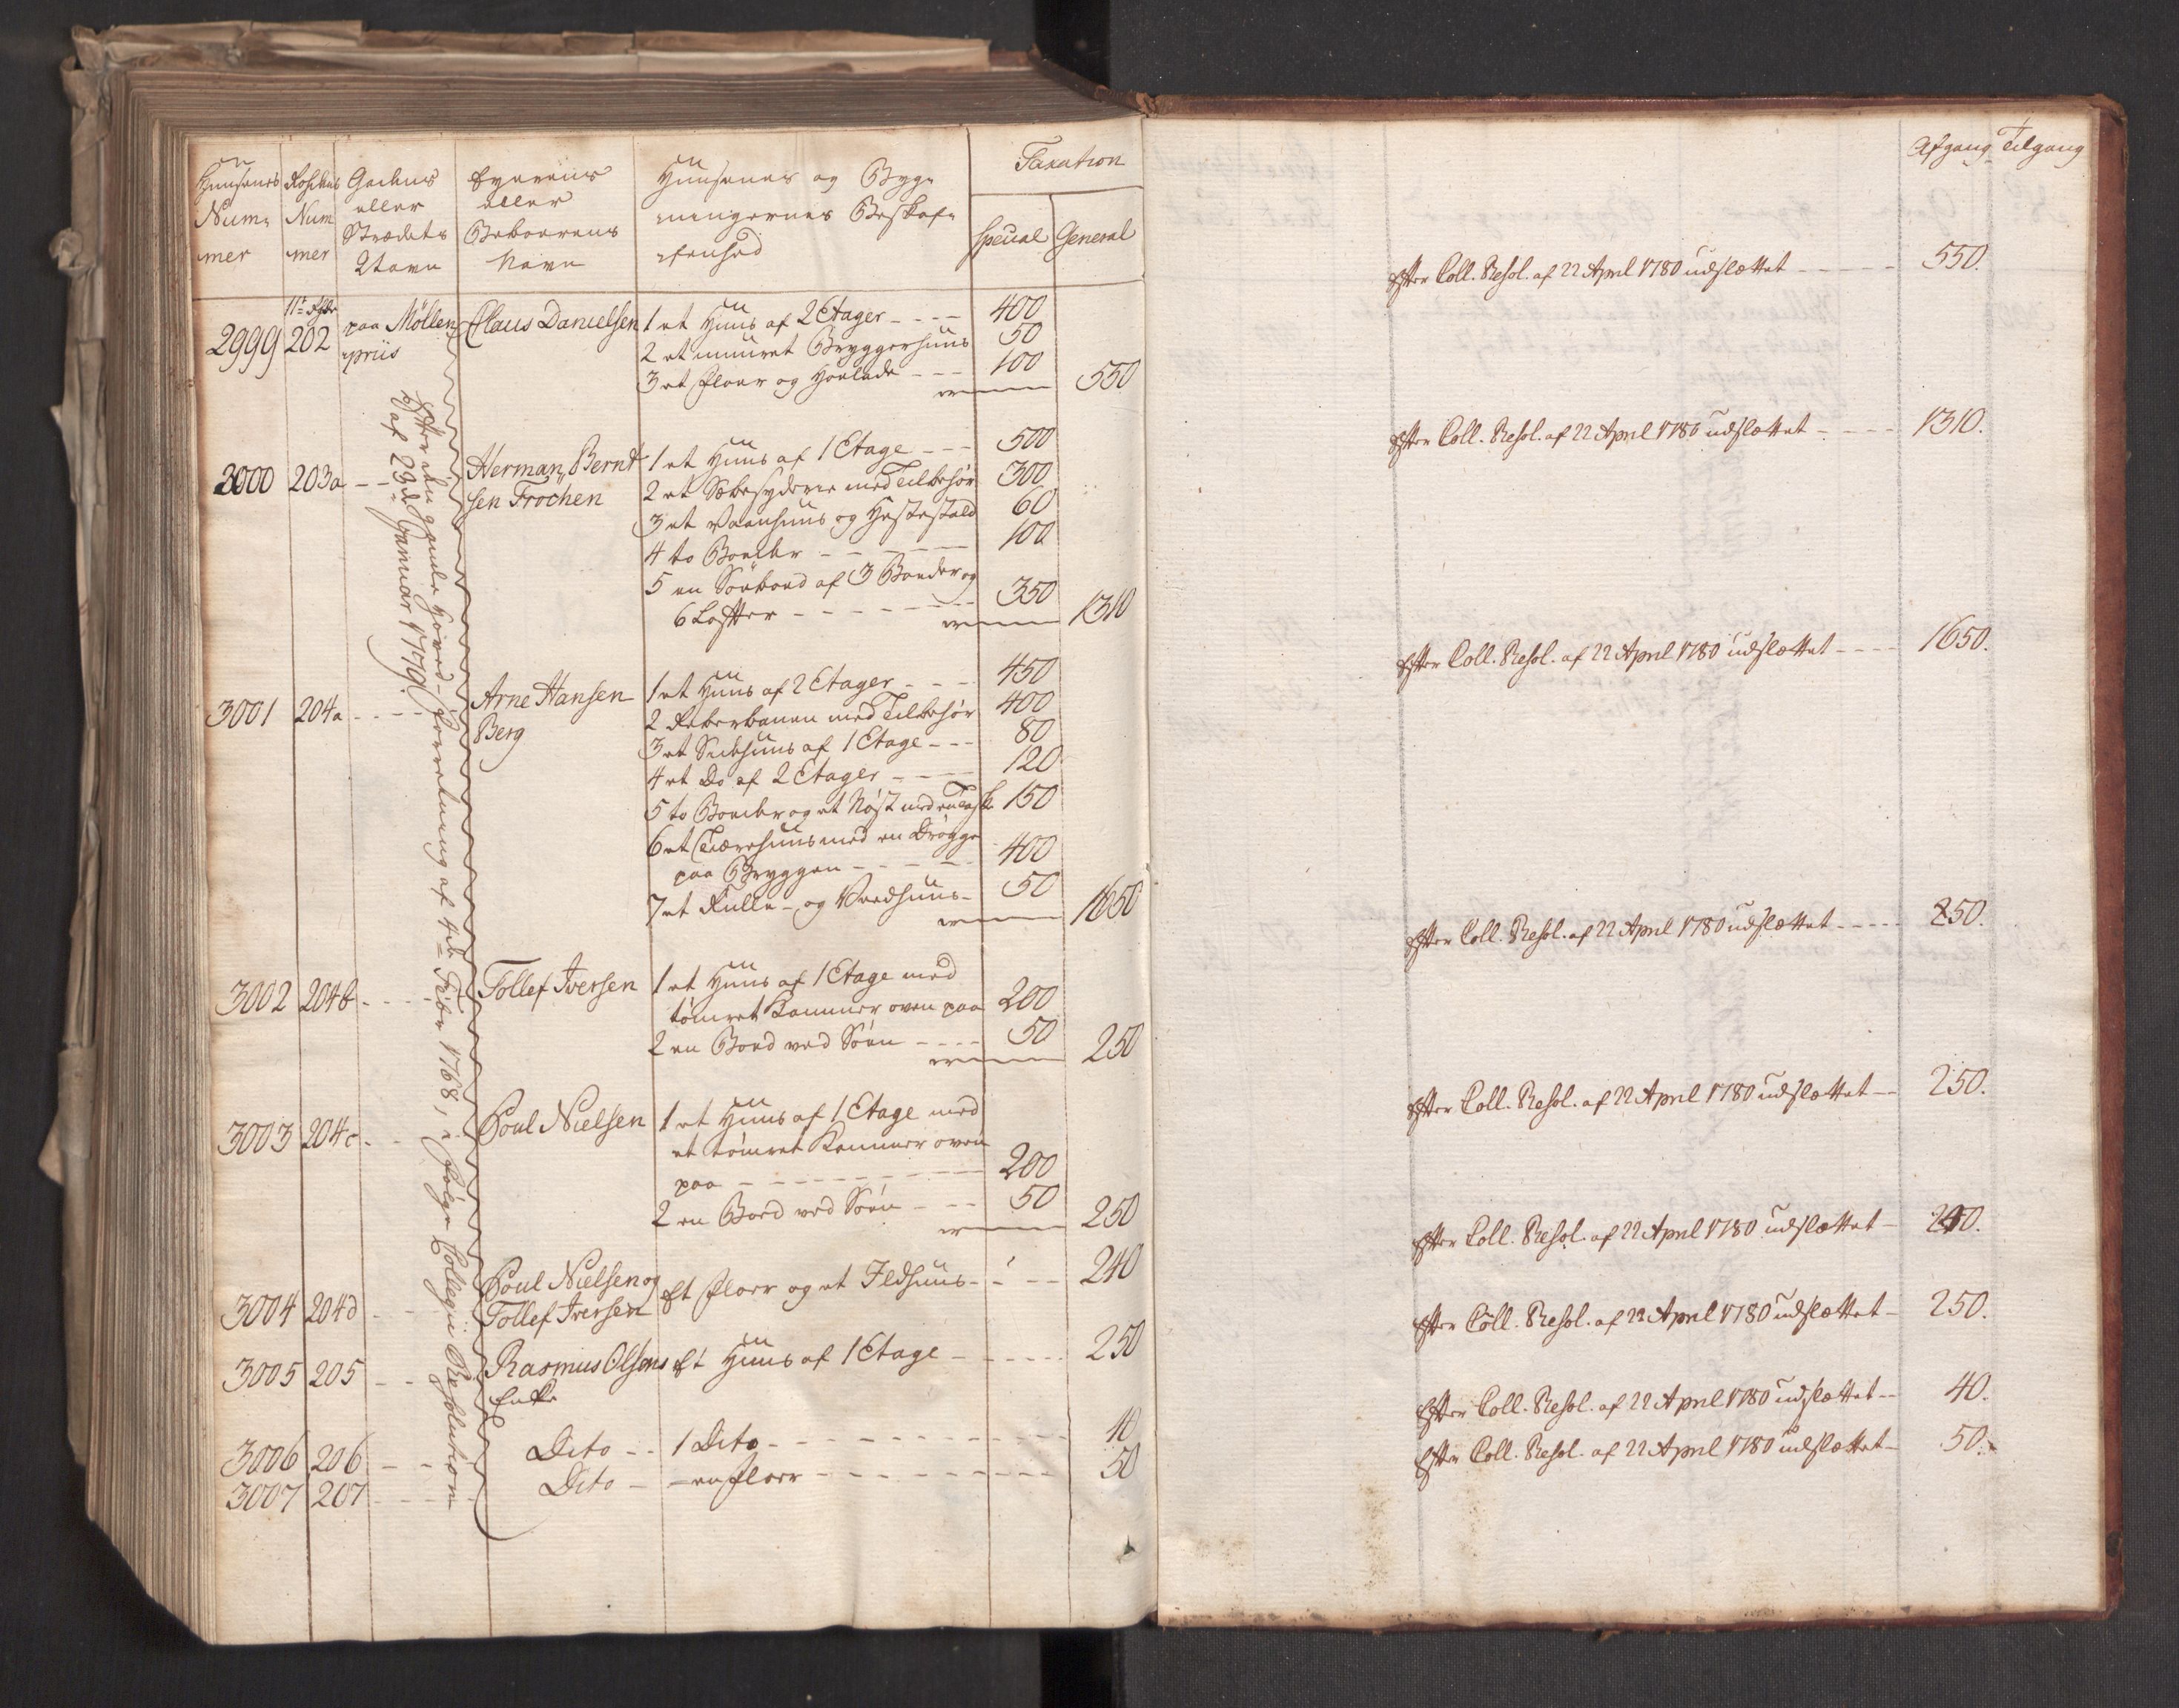 Huusenes Num- mer
Rodens Num mer
Gadens eller Strædets Navn
Eyerens eller Beboerens Navn
Huusenes og Byg- ningernes Beskaf- fenhed
Taxation
Special General
11te Rode
2999 202 paa Möllen priis Claus Danielsen
1 et Huus af 2 Etager - - - - 400
2 et muuret Bryggerhuus 50
3 et Floer og Høelade - - - 100
er 550
3000 203a - - Herman Bernt sen Frochen
1 et Huus af 1 Etage - - - 500
2 et Sæbesyderie med Tilbehør 300
3 et Vaanhuus og Hestestald 60
4 to Boeder - - - - - - 100
5 en Søeboed af 3 Boeder og
6 Lofter - - - - - - - - 350
er 1310
3001 204a - - - - Arne Hansen Berg
1 et Huus af 2 Etager - - - 450
2 Reberbanen med Tilbehør 400
3 et Sidehuus af 1 Etage - - - 80
4 et Do af 2 Etager - - - - 120
5 to Boeder og et Nøst med en 150
6 et Tiærehuus med en Brygge
paa Bryggen - - - - - 400
7 et Rulle- og Vedhuus - 50
er 1650
3002 204b - - - Tollef Iversen
1 et Huus af 1 Etage med
tømret Kammer oven paa 200
2 en Boed ved Søen - - - - 50
er 250
3003 204c - - Poul Nielsen
1 et Huus af 1 Etage med
et tømret Kammer oven
paa - - - - - - - - - 200
2 en Boed ved Søen - - - 50
er 250
3004 204d - - Poul Nielsen og Tollef Iversen
Et Floer og et Ildhuus - - - - 240
3005 205 - - Rasmus Olsens Enke
Et Huus af 1 Etage - - - - - - 250
3006 206 - - Dito - - 1 Dito - - - - - - - - - 40
3007 207 - - - Dito - - en Floer - - - - - - - - 50
Efter den gamle Hoved-Forretning af 4de Febr 1768, i følge Collegii Resolution
af 23de Januar 1779.
Afgang Tilgang
Efter Coll. Resol. af 22 April 1780 udslættet - - - - - 550.
Efter Coll. Resol. af 22 April 1780 udslættet - - - - 1310.
Efter Coll. Resol. af 22 April 1780 udslættet - - - - 1650.
Efter Coll. Resol. af 22 April 1780 udslættet - - - - - 250.
Efter Coll. Resol. af 22 April 1780 udslættet - - 250.
Efter Coll. Resol. af 22 April 1780 udslættet - 240.
Efter Coll. Resol. af 22 April 1780 udslættet - 250.
Efter Coll. Resol. af 22 April 1780 udslættet - - 40.
Efter Coll. Resol. af 22 April 1780 udslættet - 50.